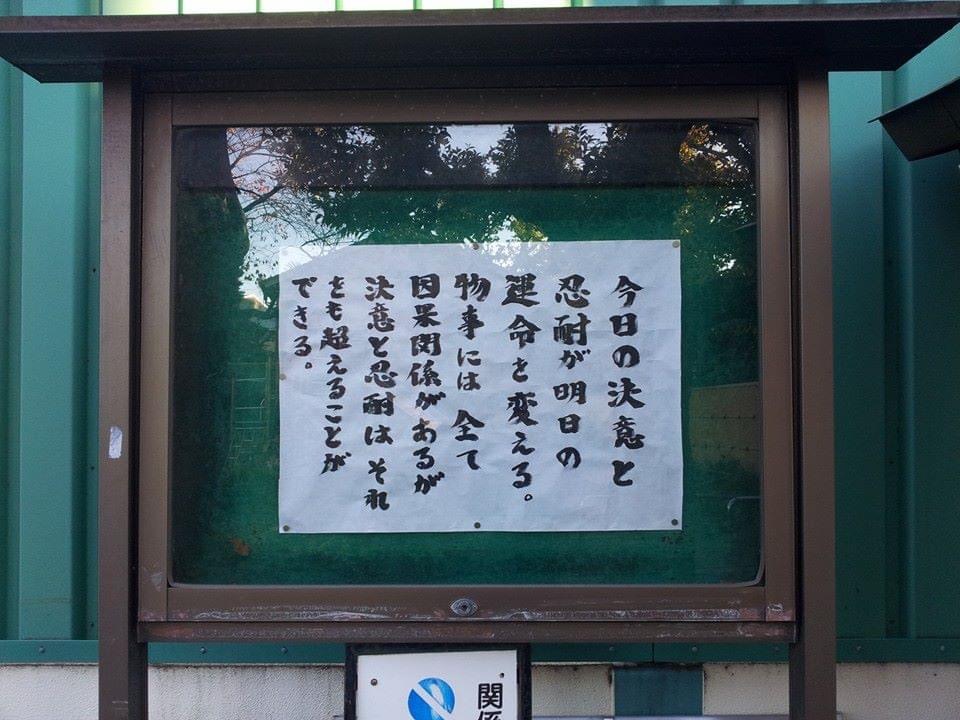 今日の決意と
忍耐が明日の
運命を変える。
物事には 全て
因果関係があるが
決意と忍耐は それ
をも超えることが
できる。
関係